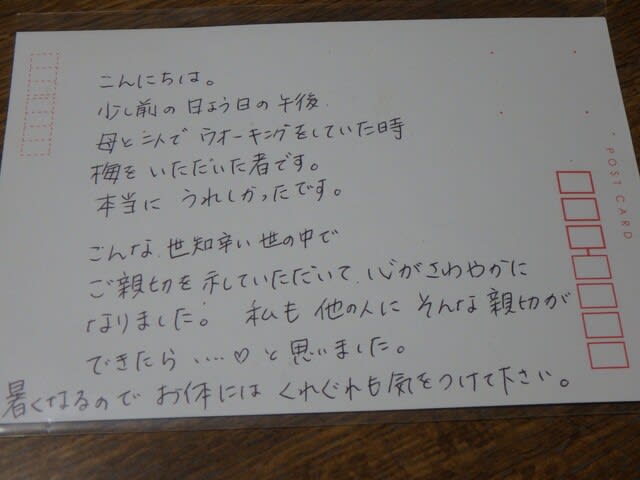 こんにちは。
少し前の日よう日の午後
母と二人で ウオーキングをしていた時
梅を いただいた者です。
本当に うれしかったです。
こんな 世知辛い 世の中で
ご親切を示していただいて 心がさわやかに
なりました。 私も 他の人に そんな 親切が
できたら ‥‥♡ と 思いました。
暑くなるので お体には くれぐれも気をつけて下さい。
POST CARD